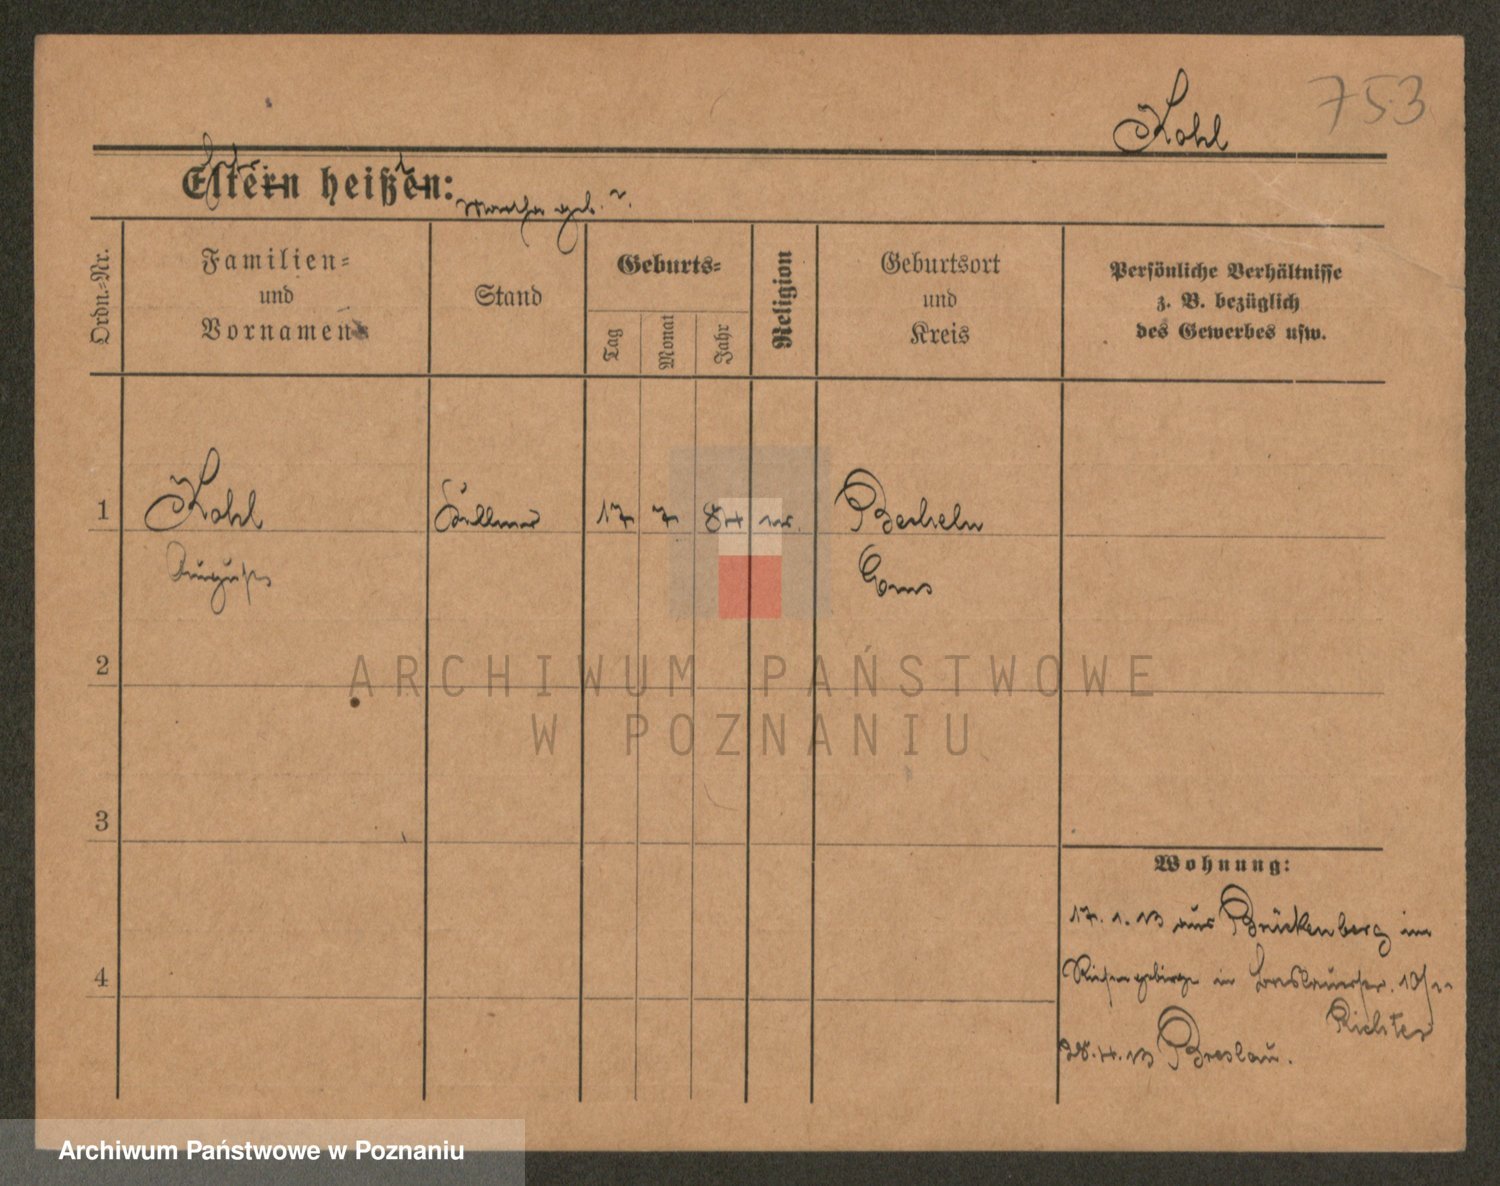 753
Kohl
Eltern heißen:
geb. ?
Ordn.-Nr.
Familien-
und
Vornamen
Stand
Geburts-
Tag
Monat
Jahr
Religion
Geburtsort
und
Kreis
Persönliche Verhältnisse
z. B. bezüglich
des Gewerbes usw.
1
Kohl
Kellner
17
7
84
August
2
3
4
Wohnung:
17. 1. 13 aus Brückenberg im
Riesengebirge in Breslauerstr. 10/
Richter
28. 4. 13 Breslau.
ARCHIWUM PAŃSTWOWE
W POZNANIU
Archiwum Państwowe w Poznaniu